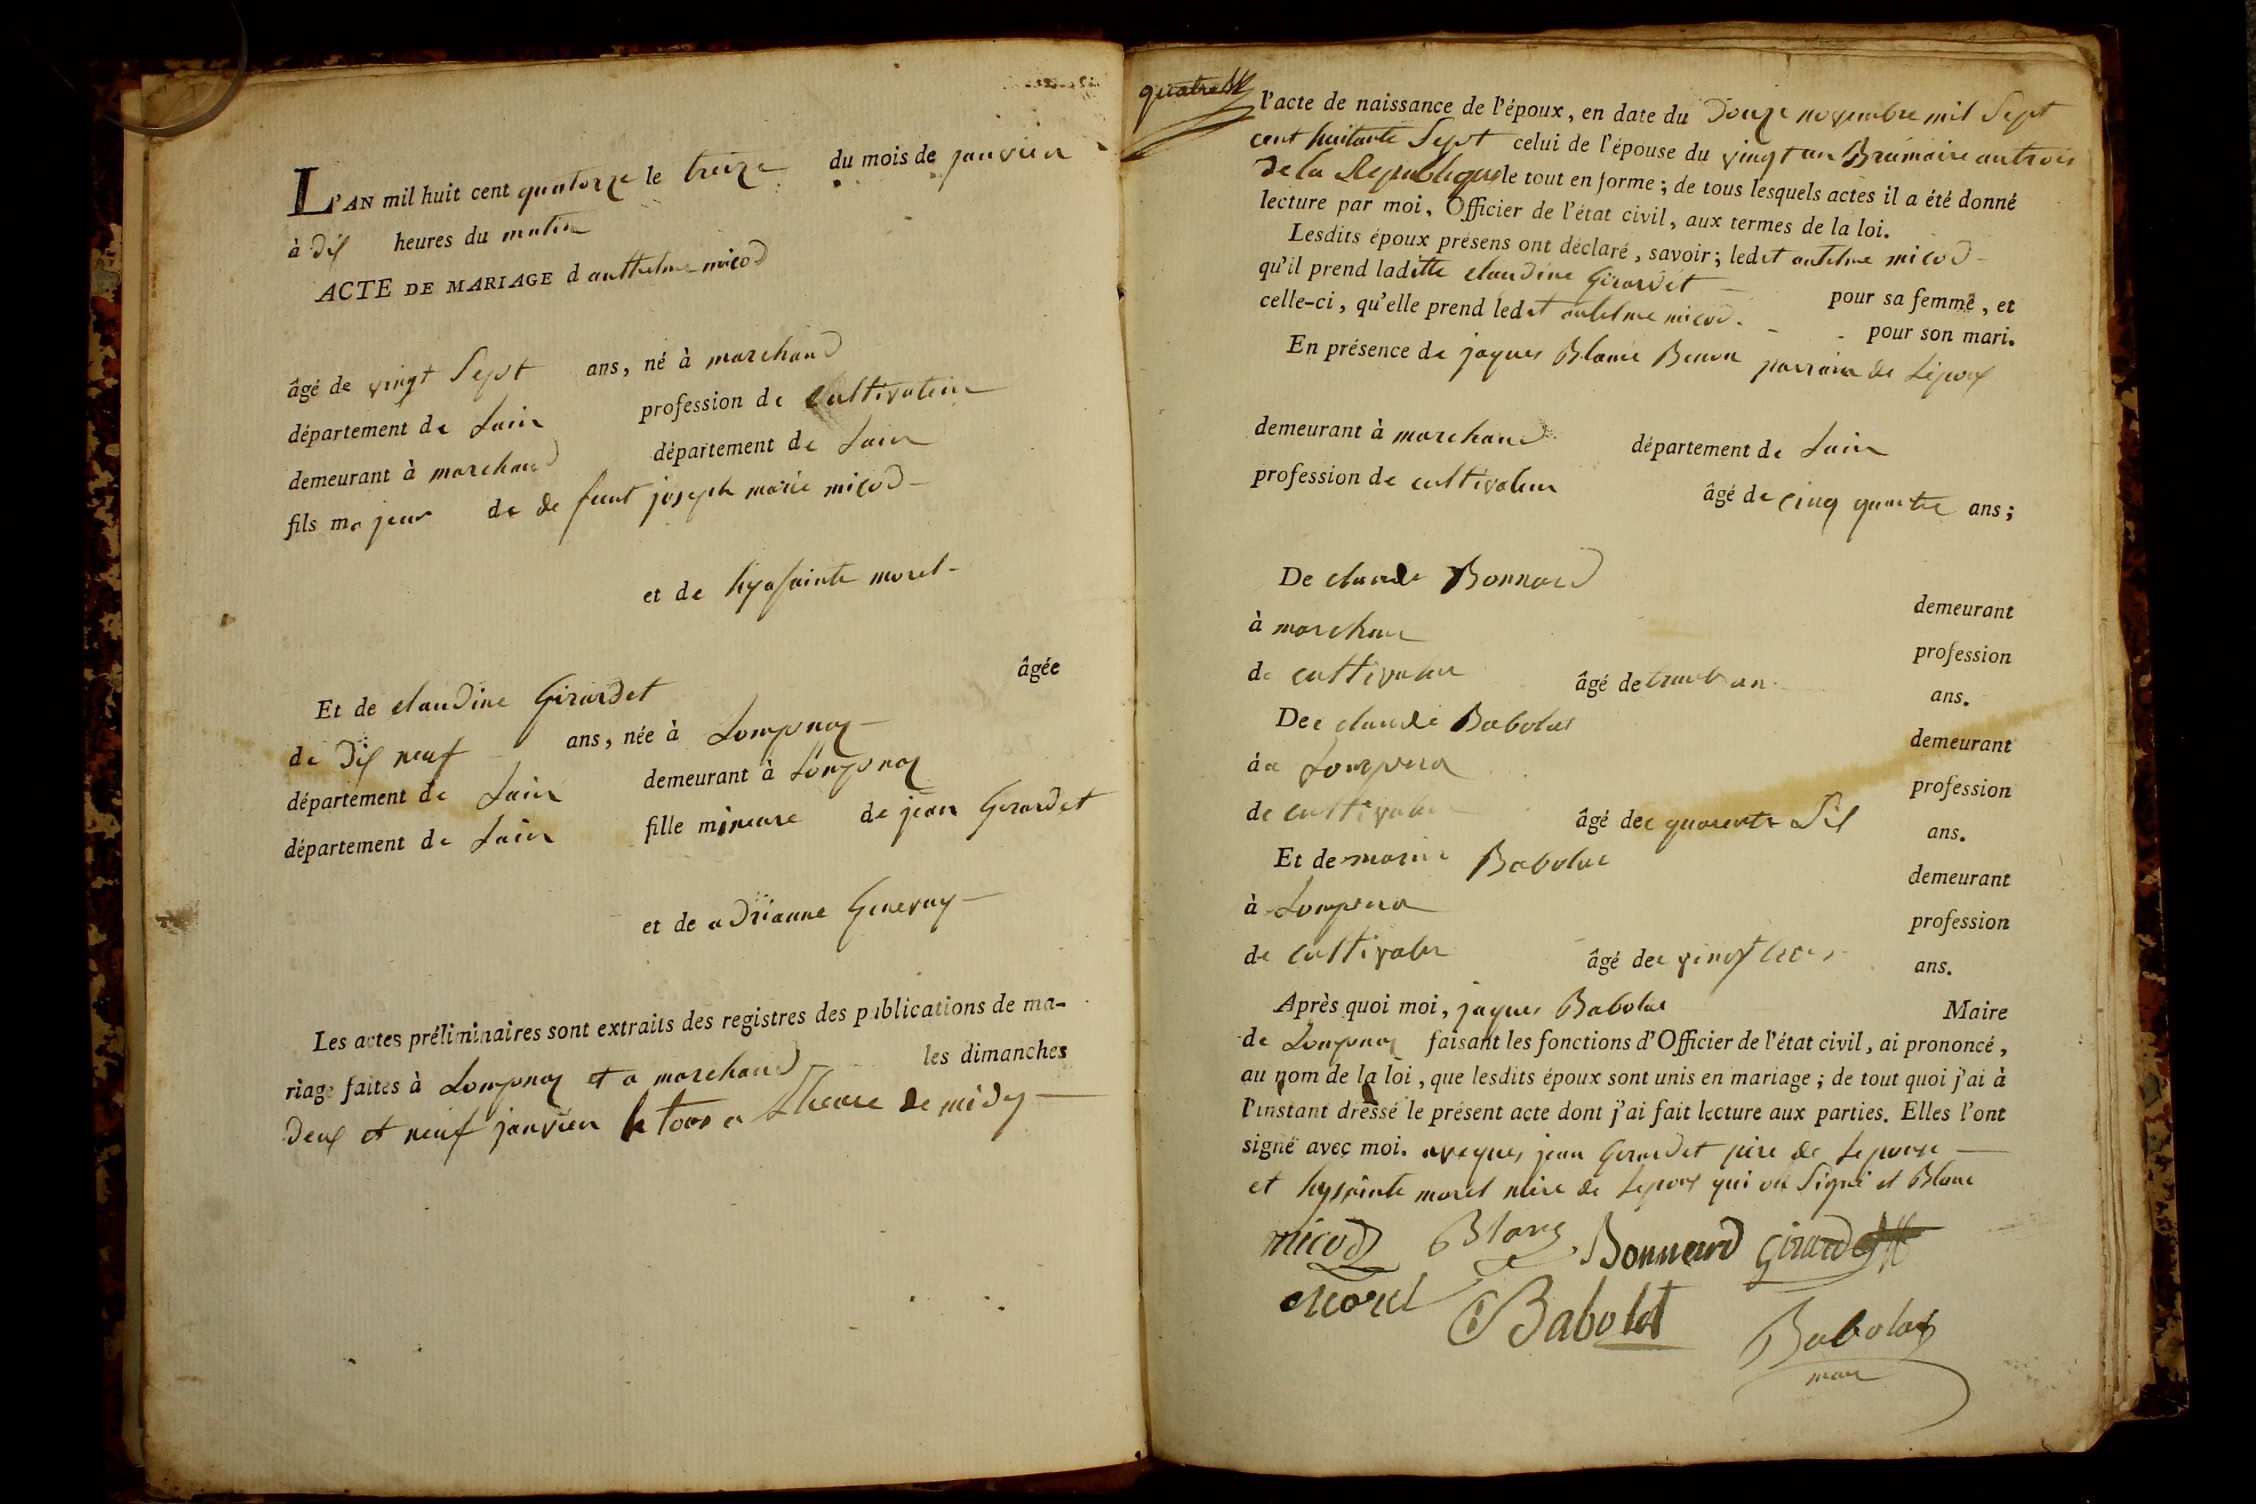 L'AN mil huit cent quatorze le treize du mois de janvier
à dix heures du matin
ACTE DE MARIAGE d anthelme micod
âgé de vingt Sept ans, né à marchand
département de Lain profession de Cultivateur
demeurant à marchand département de Lain
fils majeur de de funt joseph marie micod
et de hyasainte morel
Et de claudine Girardet âgée
de dix neuf ans, née à Lompnas
département de Lain demeurant à Lompnas
département de Lain fille mineure de jean Girardet
et de adrianne Genevay
Les actes préliminaires sont extraits des registres des publications de ma-
riage faites à Lompnas et a marchand les dimanches
deux et neuf janvier a Lheure de midy
quatre
l'acte de naissance de l'époux, en date du Douze novembre mil Sept
cent huitante Sept celui de l'épouse du vingt un Brumaire an trois
de la Republique le tout en forme ; de tous lesquels actes il a été donné
lecture par moi, Officier de l'état civil, aux termes de la loi.
Lesdits époux présens ont déclaré, savoir ; ledet antelme micod
qu'il prend laditte claudine Girardet pour sa femme, et
celle-ci, qu'elle prend ledet antelme micod pour son mari.
En présence de jaques Blanc parrain de Lepoux
demeurant à marchand département de Lain
profession de cultivateur âgé de cinquante ans ;
De claude Bonnard demeurant
à marchan profession
de cultivateur âgé de ans.
De claude Babolat demeurant
à Lompna profession
de cultivateur âgé de quarente dix ans.
Et de Babolat demeurant
à Lompna profession
de cultivateur âgé de vingt ans.
Après quoi moi, jaques Babolat Maire
de Lompnas faisant les fonctions d'Officier de l'état civil, ai prononcé,
au nom de la loi, que lesdits époux sont unis en mariage ; de tout quoi j'ai à
l'instant dressé le présent acte dont j'ai fait lecture aux parties. Elles l'ont
signé avec moi. aveques jean Girardet père de Lepouse
et hyssainte morel mère de Lepoux qui on Signé et Blanc
micod Blanc Bonnard Girardet
morel C Babolat Babolat
maire